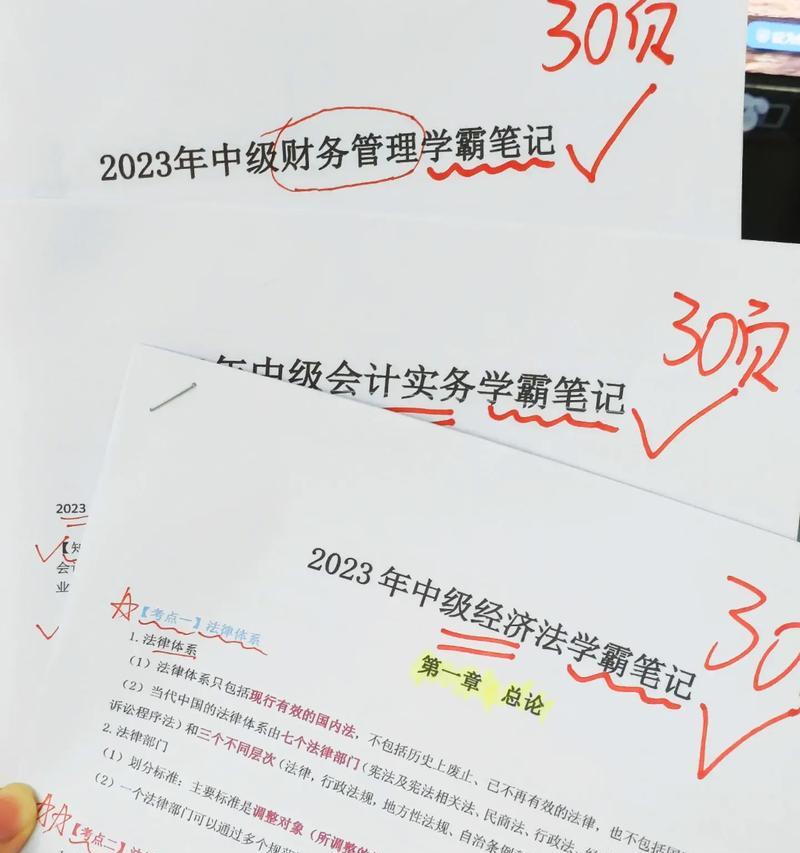 30页
2023年中级财务管理学霸笔记
30页
年中级会计实务学霸笔记
2023
【知
会计
业
2023年中级经济法学霸笔记
30
第一章 总论
【考点一】法律体系
1. 法律体系
（1）法律体系只包括现行有效的国内法，不包括历史上废止、已不再有效的法律，也不包括国
（2）当代中国的法律体系由七个法律部门（宪法及宪法相关法、民商法、行政法、经
诉讼程序法）和三个不同层次（法律，行政法规，地方性法规、自治条例
2. 法律部门
（1）划分标准：主要标准是调整对象（所调整的
（2）一个法律部门可以通过多个规范
【考点二】法